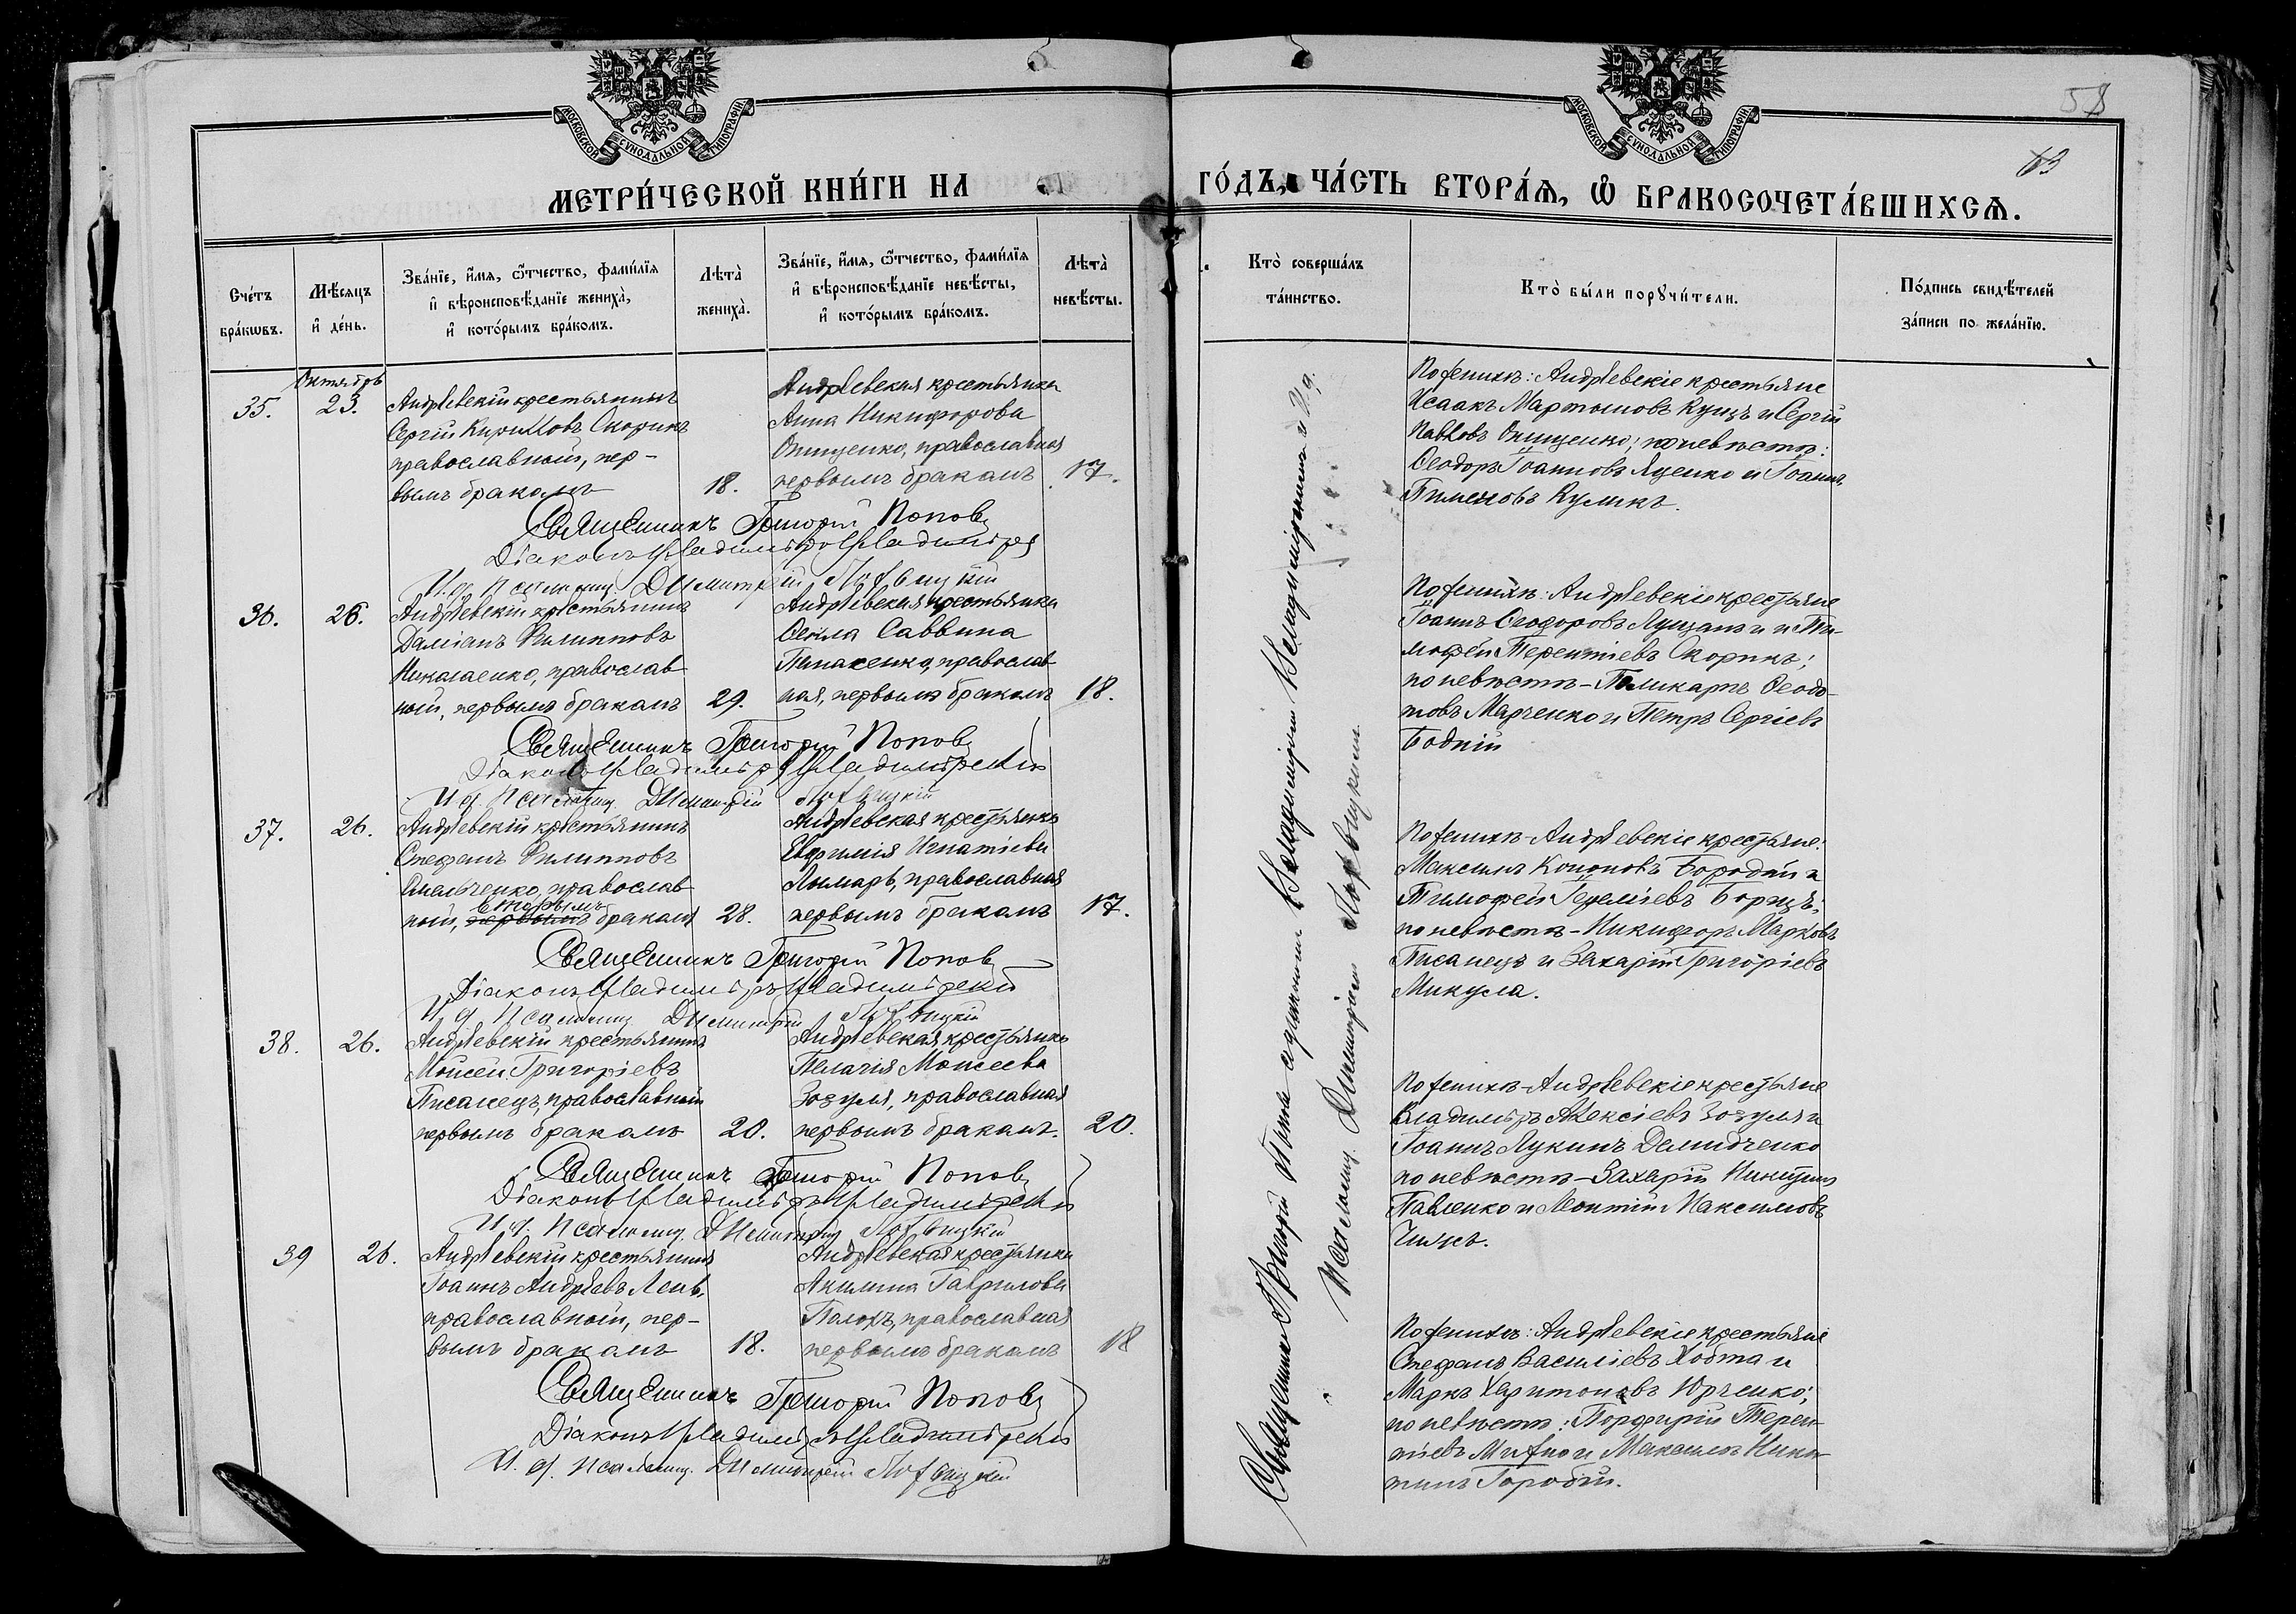 МОСКОВСКОЙ СѴНОДАЛЬНОЙ ТИПОГРАФІИ
МЕТРИ́ЧЕСКОЙ КНИ́ГИ НА
Сче́тъ бра́кѡвъ.
Мѣ́сяцъ и҆ де́нь.
Зва́нїе, и҆́мя, ѻ҆́тчество, фами́лїя
и҆ вѣроисповѣ́данїе жениха̀,
и҆ кото́рымъ бра́комъ.
Лѣта̀ жениха̀.
Зва́нїе, и҆́мя, ѻ҆́тчество, фами́лїя
и҆ вѣроисповѣ́данїе невѣ́сты,
и҆ кото́рымъ бра́комъ.
Лѣта̀ невѣ́сты.
Октябрь
35. 23. Андреевскій крестьянинъ
Сергій Кирилловъ Скорикъ
православный, пер-
вымъ бракомъ 18.
Андреевская крестьянка
Анна Никифорова
Онищенко, православная
первымъ бракомъ 17.
Священникъ Григорій Поповъ
Діаконъ Владиміръ Владимірскій
И. д. псаломщ. Димитрій
36. 26. Андреевскій крестьянинъ
Даміанъ Филипповъ
Николаенко, православ
ный, первымъ бракомъ 29.
Андреевская крестьянка
Ѳекла Саввина
православ
ная, первымъ бракомъ 18.
Священникъ Григорій Поповъ
Діаконъ Владиміръ Владимірскій
И. д. псаломщ. Димитрій
37. 26. Андреевскій крестьянинъ
Стефанъ Филипповъ
Омельченко, православ
вторымъ
ный, первымъ бракомъ 28.
Андреевская крестьянка
Евфимія Игнатіева
Лымарь, православная
первымъ бракомъ 17.
Священникъ Григорій Поповъ
Діаконъ Владиміръ Владимірскій
И. д. псаломщ. Димитрій
38. 26. Андреевскій крестьянинъ
Моисей Григоріевъ
Писанецъ, православный
первымъ бракомъ 20.
Андреевская крестьянка
Пелагія Моисеева
Зозуля, православная
первымъ бракомъ. 20.
Священникъ Григорій Поповъ
Діаконъ Владиміръ Владимірскій
И. д. псаломщ. Димитрій
39 26. Андреевскій крестьянинъ
Іоаннъ Андреевъ Лень,
православный, пер-
вымъ бракомъ 18.
Андреевская крестьянка
Акилина Гаврилова
православная
первымъ бракомъ 18
Священникъ Григорій Поповъ
Діаконъ Владиміръ Владимірскій
И. д. псаломщ. Димитрій
58
63
МОСКОВСКОЙ СѴНОДАЛЬНОЙ ТИПОГРАФІИ
ГО́ДЪ, ЧА́СТЬ ВТОРА́Ѧ, Ѽ БРАКОСОЧЕТА́ВШИХСѦ.
Кто̀ соверша́лъ
та́инство.
Кто̀ бы́ли порꙋчи́тели.
По́дпись свидѣ́телей
за́писи по жела́нїю.
Священникъ Григорій Поповъ діакономъ Владиміромъ Владимірскимъ и И. д.
псаломщ. Димитріемъ
По женихѣ: Андреевскіе крестьяне
Исаакъ Мартыновъ Куцъ и Сергій
Павловъ Онищенко; по невѣстѣ:
Ѳеодоръ Іоанновъ Яценко и Іоаннъ
Пименовъ Куликъ.
По женихѣ: Андреевскіе крестьяне
Іоаннъ Ѳеодоровъ и Ти-
моѳей Терентіевъ Скорикъ;
по невѣстѣ – Поликарпъ Ѳеодо-
товъ Марченко и Петръ Сергіевъ
Бодній
По женихѣ – Андреевскіе крестьяне:
Максимъ Кононовъ Бородій и
Тимоѳей Борщъ;
по невѣстѣ – Никифоръ Марковъ
Писанецъ и Захарій Григоріевъ
Микула.
По женихѣ – Андреевскіе крестьяне
Владиміръ Алексіевъ Зозуля и
Іоаннъ Лукинъ Демидченко
по невѣстѣ – Захарій Никитинъ
Павленко и Леонтій Максимовъ
По женихѣ: Андреевскіе крестьяне
Стефанъ Василіевъ Хобта и
Маркъ Харитоновъ Юрченко;
по невѣстѣ: Порфирій Терен-
тіевъ и Максимъ Ники-
тинъ Горобій.